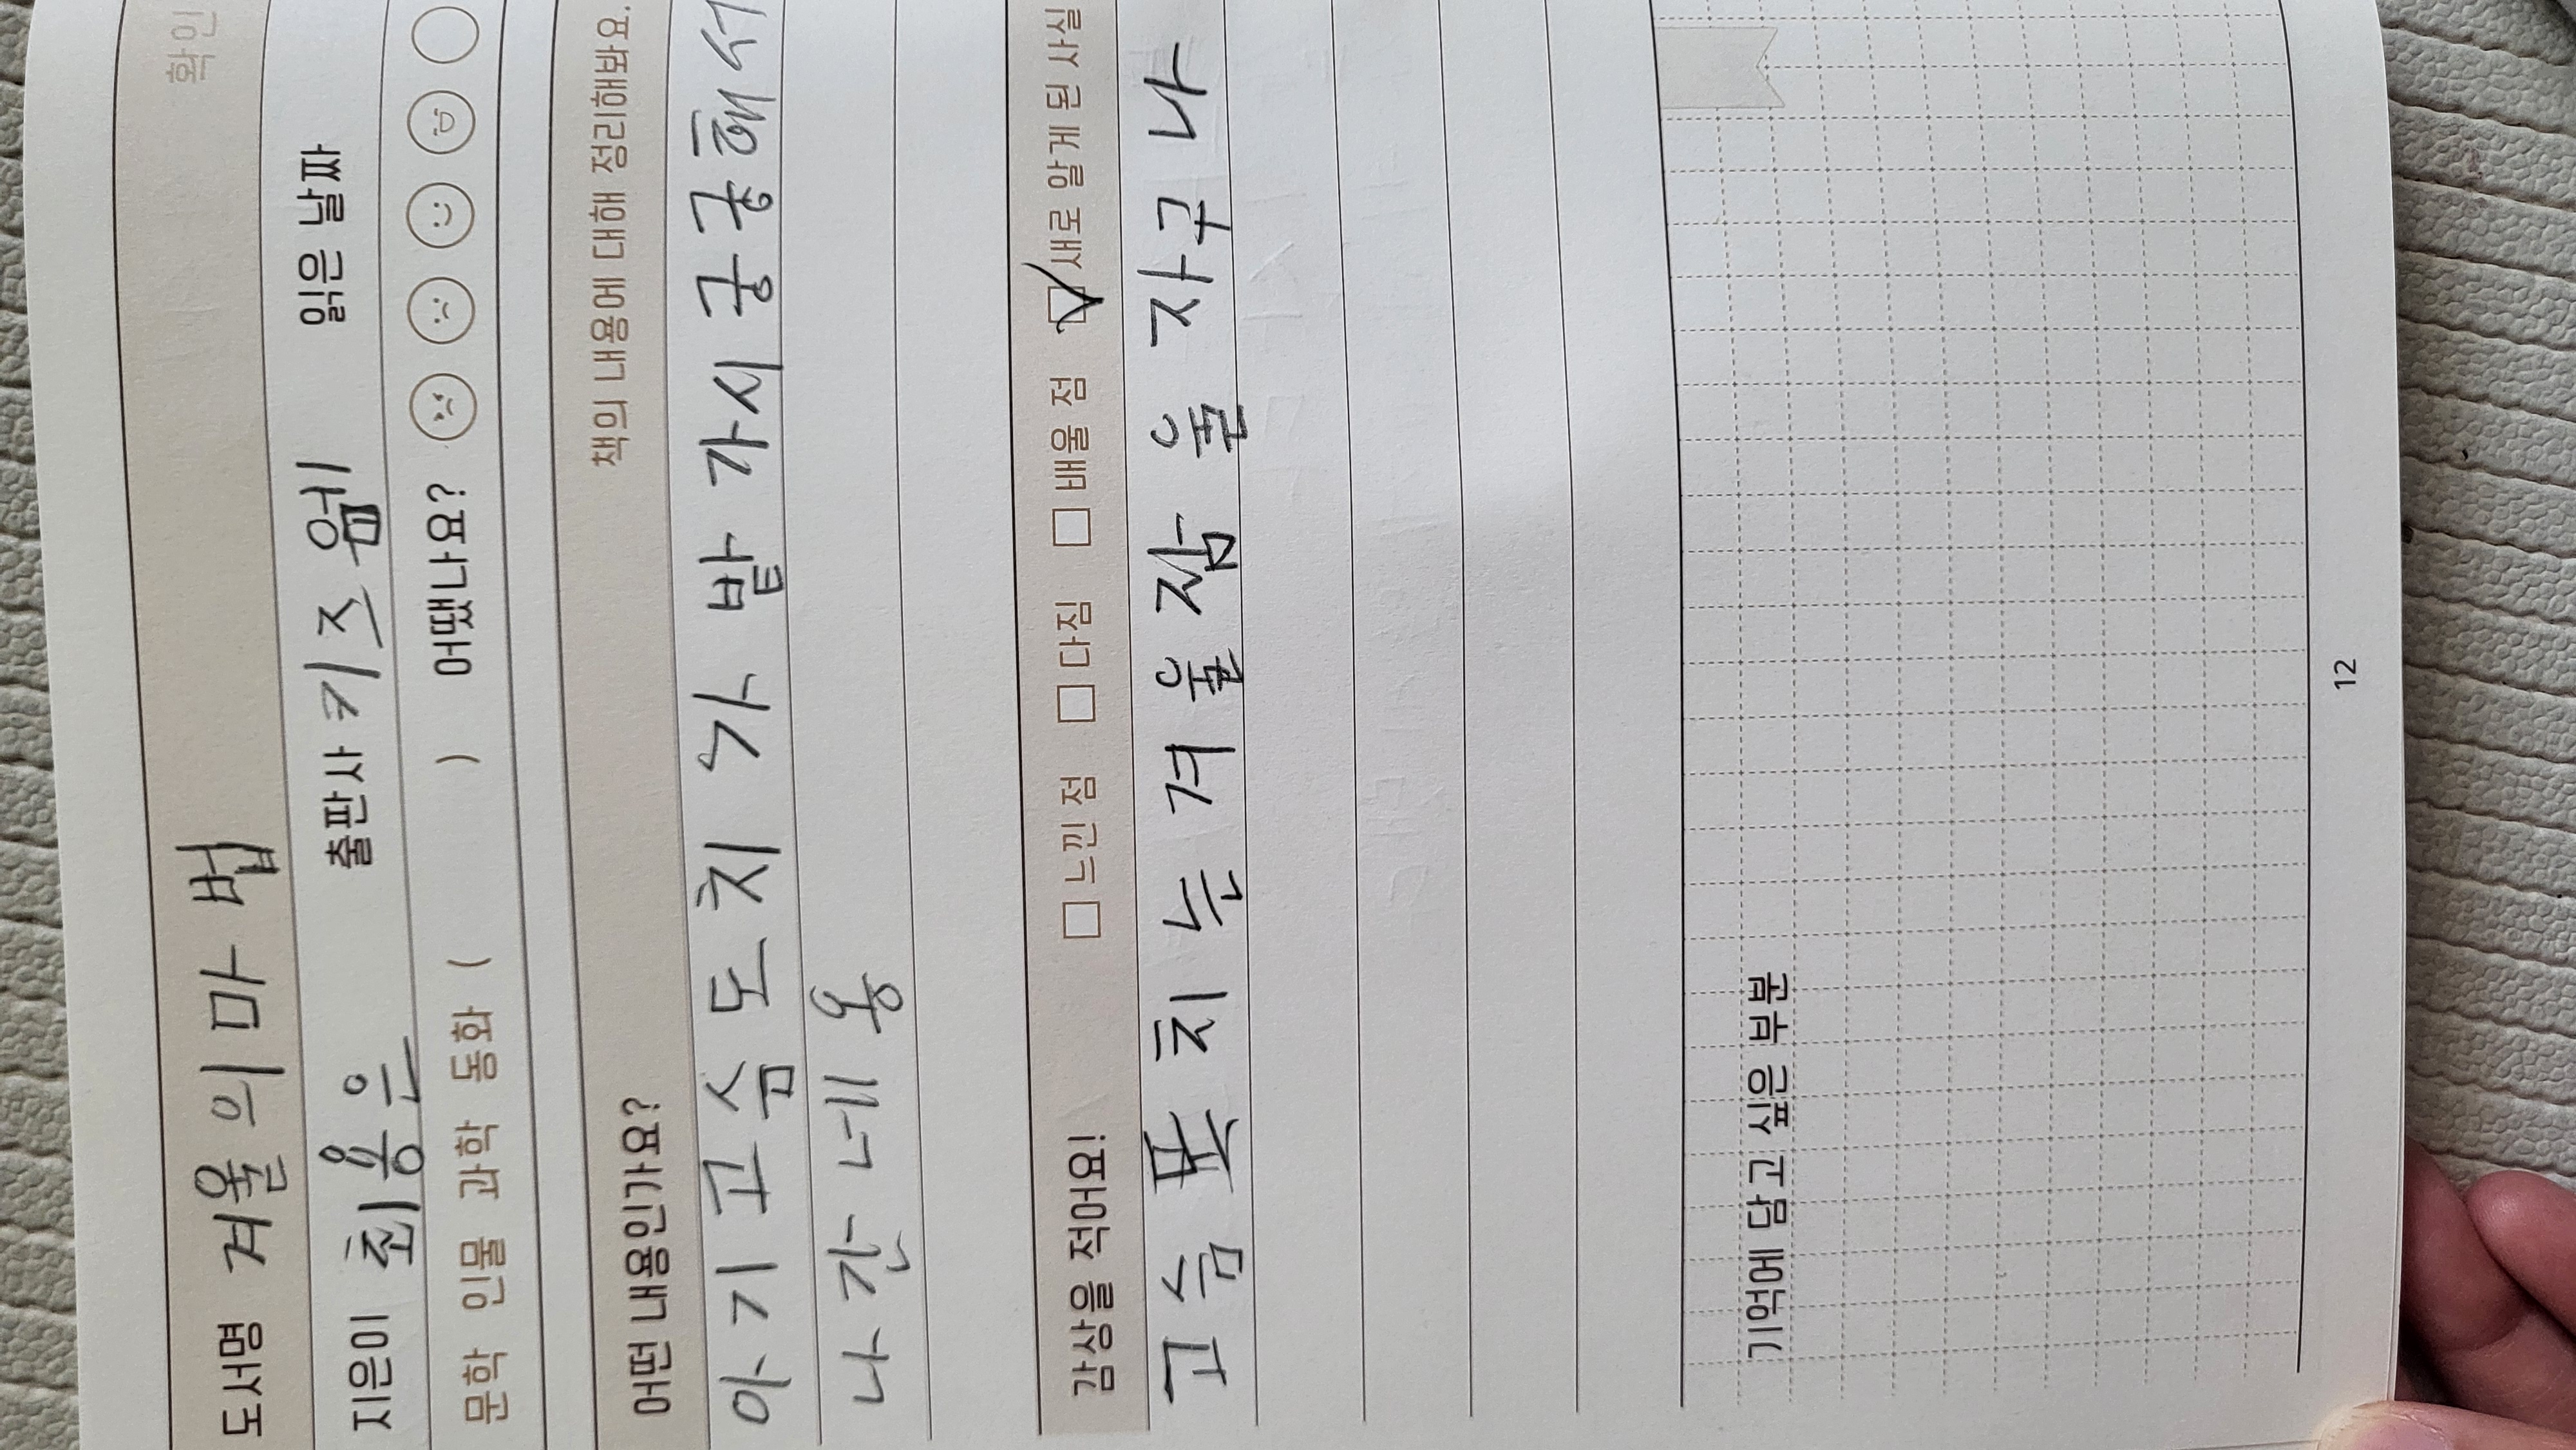 확인
도서명 겨울의 마법
지은이 최용은 출판사 키즈엠 읽은 날짜
문학 인물 과학 동화 ( ) 어땠나요?
어떤 내용인가요? 책의 내용에 대해 정리해봐요.
아기 고슴도치가 밖 가시 궁궁해서
나간 네용
감상을 적어요! 느낀 점 다짐 배울 점 새로 알게 된 사실
고슴도치는 겨울잠을 자구나
기억에 담고 싶은 부분
12